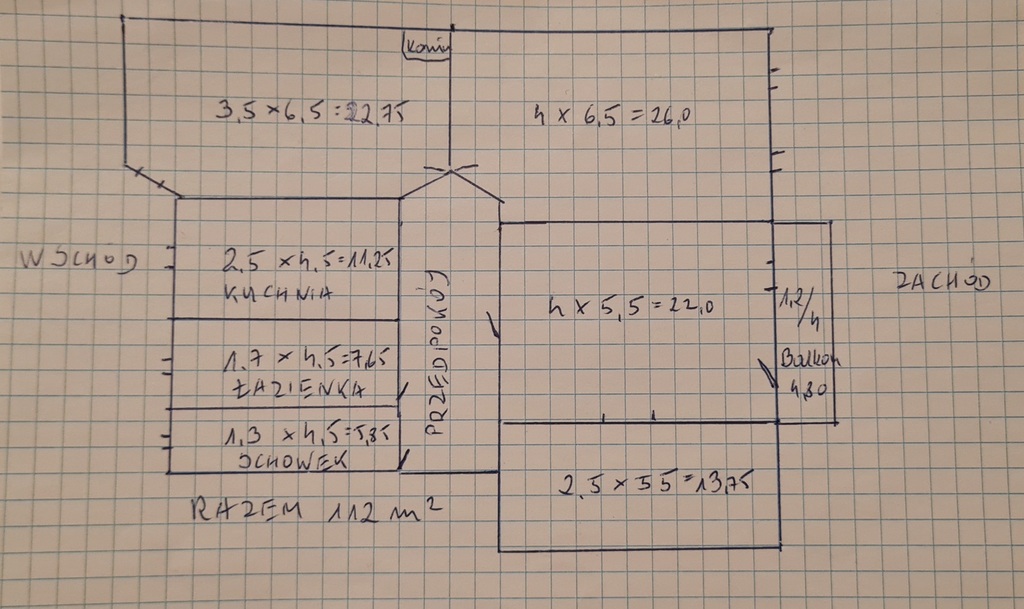 Komin
3,5 × 6,5 = 22,75
4 × 6,5 = 26,0
WSCHÓD
2,5 × 4,5 = 11,25
KUCHNIA
1,7 × 4,5 = 7,65
ŁAZIENKA
1,3 × 4,5 = 5,85
SCHOWEK
PRZEDPOKÓJ
4 × 5,5 = 22,0
1,2/4
Balkon
4,80
ZACHÓD
2,5 × 5 5 = 13,75
RAZEM 112 m²